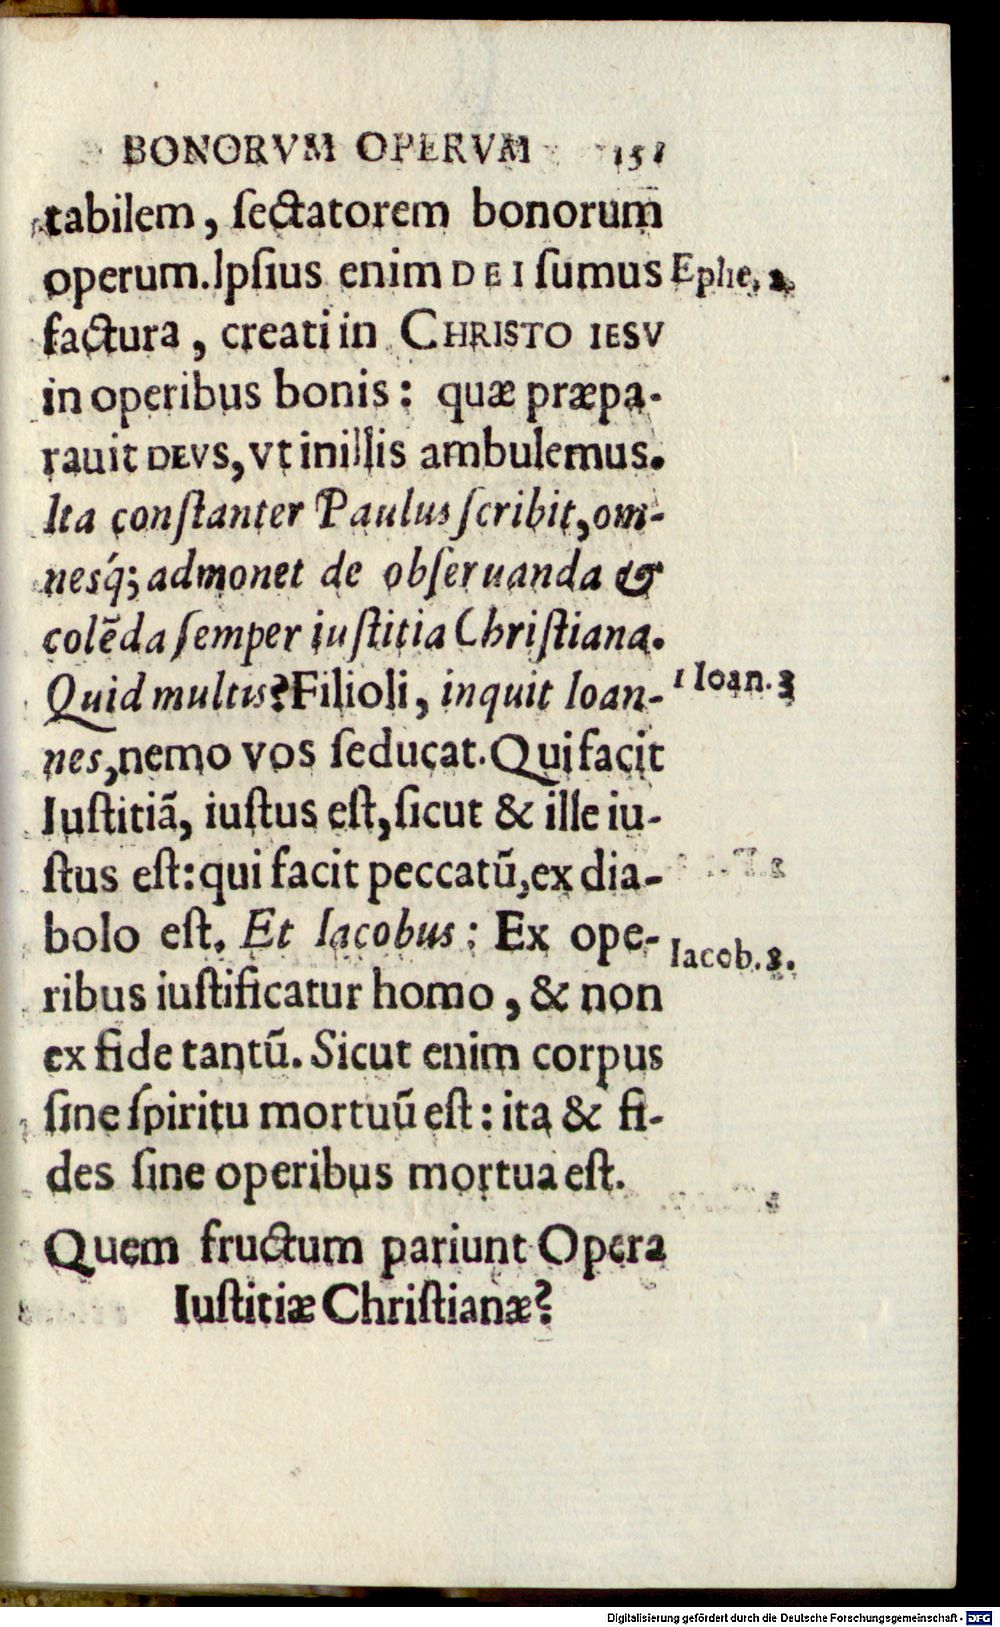 BONORVM OPERVM 151
tabilem, ſectatorem bonorum
operum. Ipſius enim DEI ſumus Ephe. 2.
factura, creati in CHRISTO IESV
in operibus bonis: quæ præpa-
rauit DEVS, vt in illis ambulemus.
Ita conſtanter Paulus ſcribit, om-
neſq́; admonet de obſeruanda &
colẽda ſemper iuſtitia Chriſtiana.
Quid multis? Filioli, inquit Ioan- 1 Ioan. 3
nes, nemo vos ſeducat. Qui facit
Iuſtitiã, iuſtus eſt, ſicut & ille iu-
ſtus eſt: qui facit peccatũ, ex dia-
bolo eſt. Et Iacobus: Ex ope- Iacob. 2.
ribus iuſtificatur homo, & non
ex fide tantũ. Sicut enim corpus
ſine ſpiritu mortuũ eſt: ita & fi-
des ſine operibus mortua eſt.
Quem fructum pariunt Opera
Iuſtitiæ Chriſtianæ?
Digitalisierung gefördert durch die Deutsche Forschungsgemeinschaft - DFG